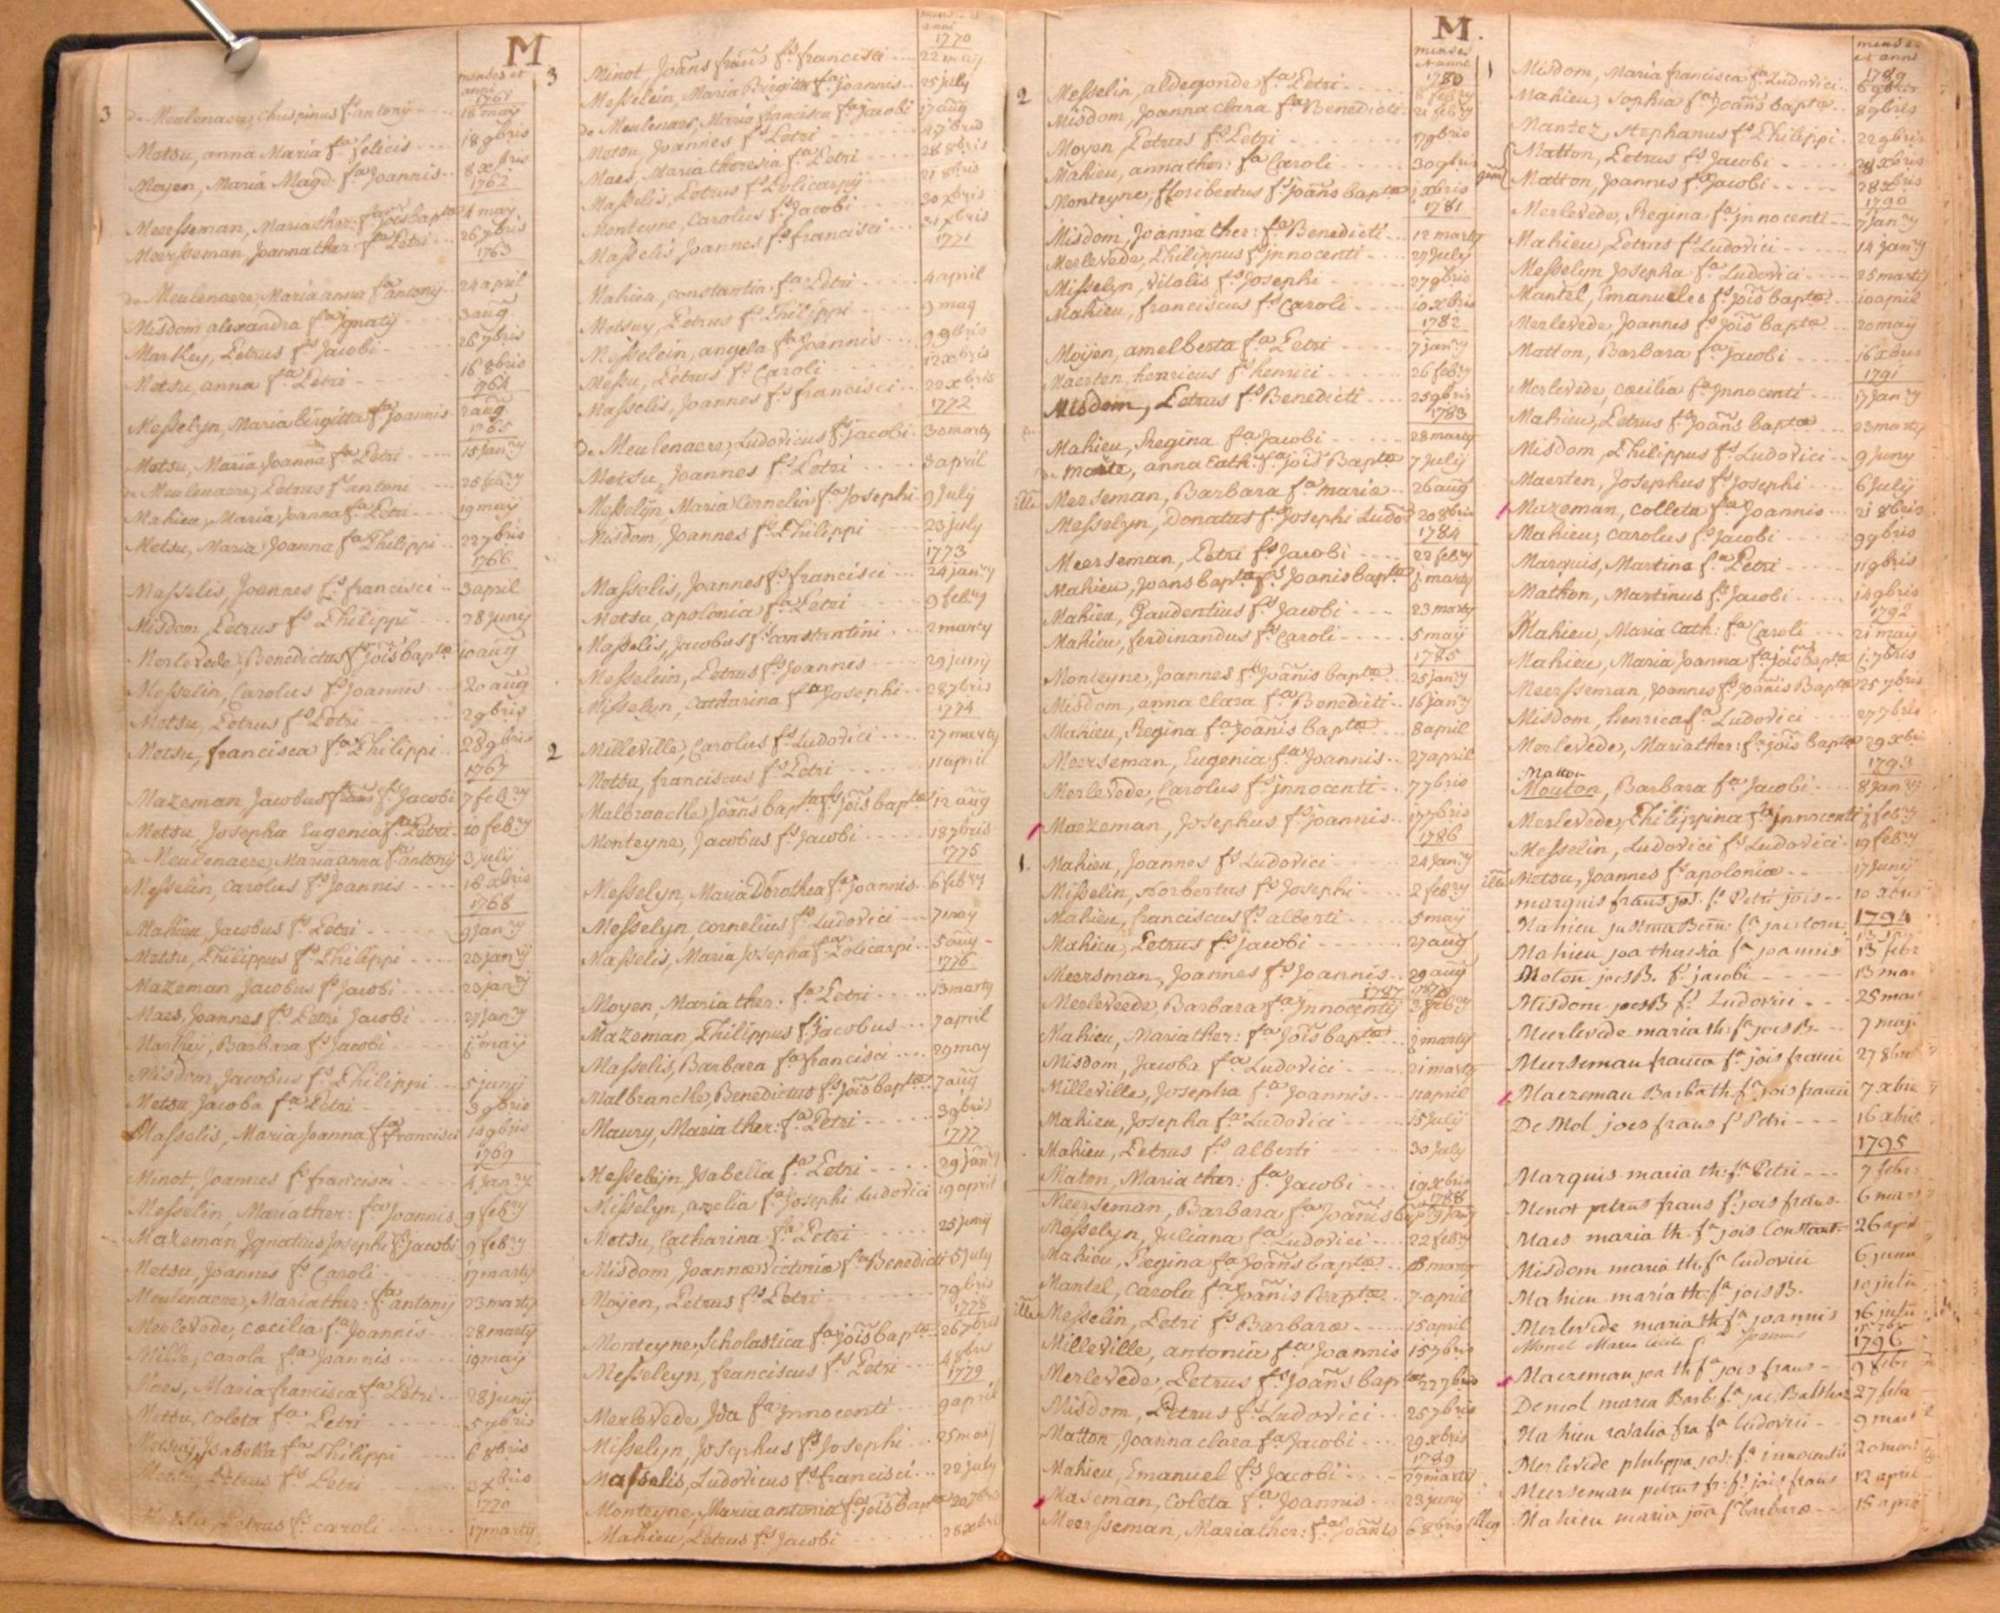 M
menses et
anni
1761
3 de Meulenaere, Chrispinus fs antonij 18 maij
Metsu, anna Maria fa felicis 18 9bris
Moyen, Maria Magd: fa Joannis 8 xbris
1762
Meersseman, Maria ther: fa Jois bapta 4 may
Meersseman Joanna ther fa Petri 26 7bris
1763
de Meulenaere, Maria anna fa antonij 24 april
Misdom alexandra fa Ignatij 3 aug
Markey, Petrus fs Jacobi 26 7bris
Metsu, anna fa Petri 16 8bris
1764
Messelyn, Maria birgitta fa Joannis 2 aug
1765
Metsu, Maria Joanna fa Petri 15 Janry
de Meulenaere, Petrus fs antoni 28 febry
Mahieu, Maria Joanna fa Petri 19 maij
Metsu, Maria Joanna fa Philippi 22 7bris
1766
Masselis, Joannes fs francisci 3 april
Misdom, Petrus fs Philippi 28 Junij
Merlevede, Benedictus fs Jois bapta 10 aug
Messelin, Carolus fs Joannis 20 aug
Metsu, Petrus fs Petri 2 9bris
Metsu, francisca fa Philippi 28 9bris
1767
Mazeman, Jacobus frans fs Jacobi 7 febry
Metsu, Josepha Eugenia fa Petri 10 febry
de Meulenaere, Maria anna fa antonij 3 July
Messelin, Carolus fs Joannis 16 xbris
1768
Mahieu, Jacobus fs Petri 9 Janry
Metsu, Philippus fs Philippi 20 Janry
Mazeman Jacobus fs Jacobi 23 Janry
Maes, Joannes fs Petri Jacobi 27 Janry
Markey, Barbara fa Jacobi maij
Misdom, Jacobus fs Philippi 5 junij
Metsu Jacoba fa Petri 3 9bris
Masselis, Maria Joanna fa francisci 14 9bris
1769
Minot, Joannes fs francisci 4 Janry
Messelin, Maria ther: fa Joannis 9 febry
Mazeman Ignatius Josephi fs Jacobi 9 febry
Metsu, Joannes fs Caroli 17 martij
Meulenaere, Maria ther: fa antonij 23 martij
Merlevede, Cæcilia fa Joannis 28 martij
Mille, Carola fa Joannis 19 maij
Maes, Maria francisca fa Petri 28 junij
Metsu, Coleta fa Petri 5 7bris
Metsuy, Isabella fa Philippi 6 8bris
Metsu, Petrus fs Petri xbris
1770
Metsu, Petrus fs caroli 17 martij
menses et
anni
1770
3 Minot, Joans frans fs francisci 22 maij
Messelein, Maria Birgitta fa Joannis 25 july
de Meulenaere, Maria francisca fa Jacobi 17 aug
Metsu, Joannes fs Petri 27 7bris
Maes, Maria theresia fa Petri 28 8bris
Masselis, Petrus fs Policarpij 21 8bris
Monteyne, Carolus fs Jacobi 30 xbris
Masselis Joannes fs francisci 31 xbris
1771
Mahieu, constantia fa Petri 4 april
Metsuy, Petrus fs Philippi 9 may
Messelein, angela fa Joannis 9 9bris
Messu, Petrus fs Caroli 12 xbris
Masselis, Joannes fs francisci 22 xbris
1772
de Meulenaere, Ludovicus fs jacobi 30 marty
Metsu, Joannes fs Petri 3 april
Messelyn, Maria Cornelia fa Josephi 9 July
Misdom, Joannes fs Philippi 23 July
1773
Masselis, Joannes fs francisci 24 janry
Metsu, apolonia fa Petri 9 febry
Masselis, Jacobus fs constantini 2 marty
Messelein, Petrus fs Joannes 29 junij
Misselyn, Catharina fa Josephi 28 7bris
1774
2 Milleville, Carolus fs Ludovici 27 marty
Metsu, franciscus fs Petri 11 april
Malbrancke, Joans bapta fs jois bapta 12 aug
Monteyne, Jacobus fs Jacobi 18 7bris
1775
Messelyn, Maria Dorothea fa Joannis 6 febry
Messelyn cornelius fs Ludovici 7 may
Masselis, Maria Josepha fa Policarpi 5 aug
1776
Moyen, Maria ther: fa Petri 13 marty
Mazeman, Philippus fs jacobus 7 april
Masselis, Barbara fa francisci 29 may
Malbrancke, Benedictus fs Jois bapta 7 aug
Maury, Maria ther: fa Petri 3 9bris
1777
Messelyn, Isabella fa Petri 29 Janry
Misselyn, amelia fa Josephi Ludovici 19 april
Metsu, Catharina fa Petri 25 junij
Misdom Joanna Victoria fa Benedicti 5 July
Moyen, Petrus fs Petri 7 9bris
1778
Monteyne, Scholastica fa jois bapta 26 7bris
Messeleyn, franciscus fs Petri 4 8bris
1779
Merlevede, Ida fa Innocenti 9 april
Misselyn, Josephus fs Josephi 25 may
Masselis, Ludovicus fs francisci 22 july
Monteyne, Maria antonia fa jois bapta 20 7bris
Mahieu, Petrus fs Jacobi 28 xbris
M.
menses
et anni
1780
2 Messelin, aldegonde fa Petri 8 febry
Misdom, Joanna Clara fa Benedicti 21 febry
Moyen, Petrus fs Petri 17 9bris
Mahieu, anna ther: fa Caroli 30 9bris
Monteyne, floribertus fs Joans bapta 1 xbris
1781
Misdom, Joanna ther: fa Benedicti 12 marty
Merlevede, Philippus fs Innocenti 27 July
Misselyn, Vitalis fs Josephi 27 9bris
Mahieu, franciscus fs Caroli 10 xbris
1782
Moijen, amelberta fa Petri 7 janry
Maerten, henricus fs henrici 26 febry
Misdom, Petrus fs Benedicti 25 9bris
1783
Mahieu, Regina fa Jacobi 28 marty
de Marle, anna Cath: fa jois Bapta 7 July
ille Merseman, Barbara fa mariæ 26 aug
Messelyn, Donatus fs Josephi Ludov 20 8bris
1784
Meerseman, Petri fs Jacobi 22 febry
Mahieu, Joans bapta fs Joanis bapta marty
Mahieu, Gaudentius fs Jacobi 23 marty
Mahieu, ferdinandus fs Caroli 5 maij
1785
Monteyne, Joannes fs Joanis bapta 25 janry
Misdom, anna Clara fa Benedicti 16 janry
Mahieu, Regina fa Joanis bapta 8 april
Meerseman, Eugenia fa Joannis 27 april
Merlevede, Carolus fs Innocenti 7 7bris
Maezeman, Josephus fs Joannis 17 7bris
1786
1. Mahieu, Joannes fs Ludovici 24 Janry
Misselin, Norbertus fs Josephi 2 febry
Mahieu, franciscus fs alberti 5 maij
Mahieu, Petrus fs jacobi 27 aug
Meersman, Joannes fs Joannis 29 aug
1787
Merleveede, Barbara fa Innocenti 3 febry
Mahieu, Maria ther: fa Jois bapta marty
Misdom, Jacoba fa Ludovici 21 marty
Milleville, Josepha fa Joannis 11 april
Mahieu, Josepha fa Ludovici 15 July
Mahieu, Petrus fs alberti 30 July
Maton, Maria ther: fa Jacobi 19 xbris
1788
Meerseman, Barbara fa Joanis bapta janry
Messelyn, Juliana fa Ludovici 22 febry
Mahieu, Regina fa Joans bapta marty
Mantel, Carola fa Joanis Bapta 7 april
ille Messelin, Petri fs Barbaræ 15 april
Milleville, antonia fa Joannis 15 7bris
Merlevede, Petrus fs Joans bapta 22 7bris
Misdom, Petrus fs Ludovici 25 7bris
Matton, Joanna clara fa Jacobi 29 xbris
1789
Mahieu, Emanuel fs Jacobi 27 marty
Maseman, Coleta fa Joannis 23 junij
Meersseman, Maria ther: fa Joanis 6 8bris
menses
et anni
1789
1 Misdom, Maria francisca fa Ludovici 6 9bris
Mahieu, Sophia fa Joans bapta 8 9bris
Mantez, Stephanus fs Philippi 22 9bris
Matton, Petrus fs Jacobi 28 xbris
Matton, Joannes fs Jacobi 28 xbris
1790
Merlevede, Regina fa Innocenti 7 janry
Mahieu, Petrus fs Ludovici 14 janry
Messelyn Josepha fa Ludovici 25 marty
Mantel, Emanueles fs jois bapta 10 april
Merlevede, Joannes fs Jois bapta 20 maij
Matton, Barbara fa Jacobi 16 xbris
1791
Merlevede, cæcilia fa Innocenti 17 janry
Mahieu, Petrus fs Joans bapta 23 marty
Misdom, Philippus fs Ludovici 9 Juny
Maerten, Josephus fs Josephi 6 July
Mazeman, Colleta fa Joannis 21 8bris
Mahieu, Carolus fs Jacobi 9 9bris
Marquis, Martina fa Petri 11 9bris
Mathon, Martinus fs Jacobi 14 9bris
1792
Mahieu, Maria Cath: fa Caroli 21 maij
Mahieu, Maria Joanna fa jois bapta 7bris
Meersseman, Joannes fs Joanis Bapta 25 7bris
Misdom, henrica fa Ludovici 27 7bris
Merlevede, Maria ther: fa jois bapta 29 xbris
1793
Matton
Mouton, Barbara fa Jacobi 8 Janry
Merlevede, Philippina fa Innocenti febry
Messelin, Ludovici fs Ludovici 19 febry
ille Metsu, Joannes fs apoloniæ 17 junij
marquis frans jos. fs Petri jois 10 xbris
1794
Mahieu joa theresia fa joannis 13 febr
Moton joes B. fs jacobi 13 mar
Misdom joes B fs Ludovici 25 mar
Merlevede maria th. fa jois B. 7 maji
Meerseman franca fa jois franci 27 8bris
Maezeman Barba th. fa Jois franci 7 xbris
De Mol joes frans fs Petri 16 xbris
1795
Marquis maria th. fa Petri 7 febr
Minot petrus frans fs jois frans 6 mars
Maes maria th. fa jois Constant. 26 april
Misdom maria th. fa Ludovici 6 junii
Mahieu maria th. fa jois B. 10 julii
Merlevede maria th. fa joannis 16 julii
1796
Maezeman joa th. fa jois frans 9 febr
Demol maria Barb. fa jac. Balthaz 27 febr
Mahieu rosalia fra fa Ludovici 9 mart
Merlevede philippa jos. fa innocentii 20 mart
Meerseman petrus fr. fs jois frans 12 april
illeg Mahieu maria joa fa Barbaræ 15 april